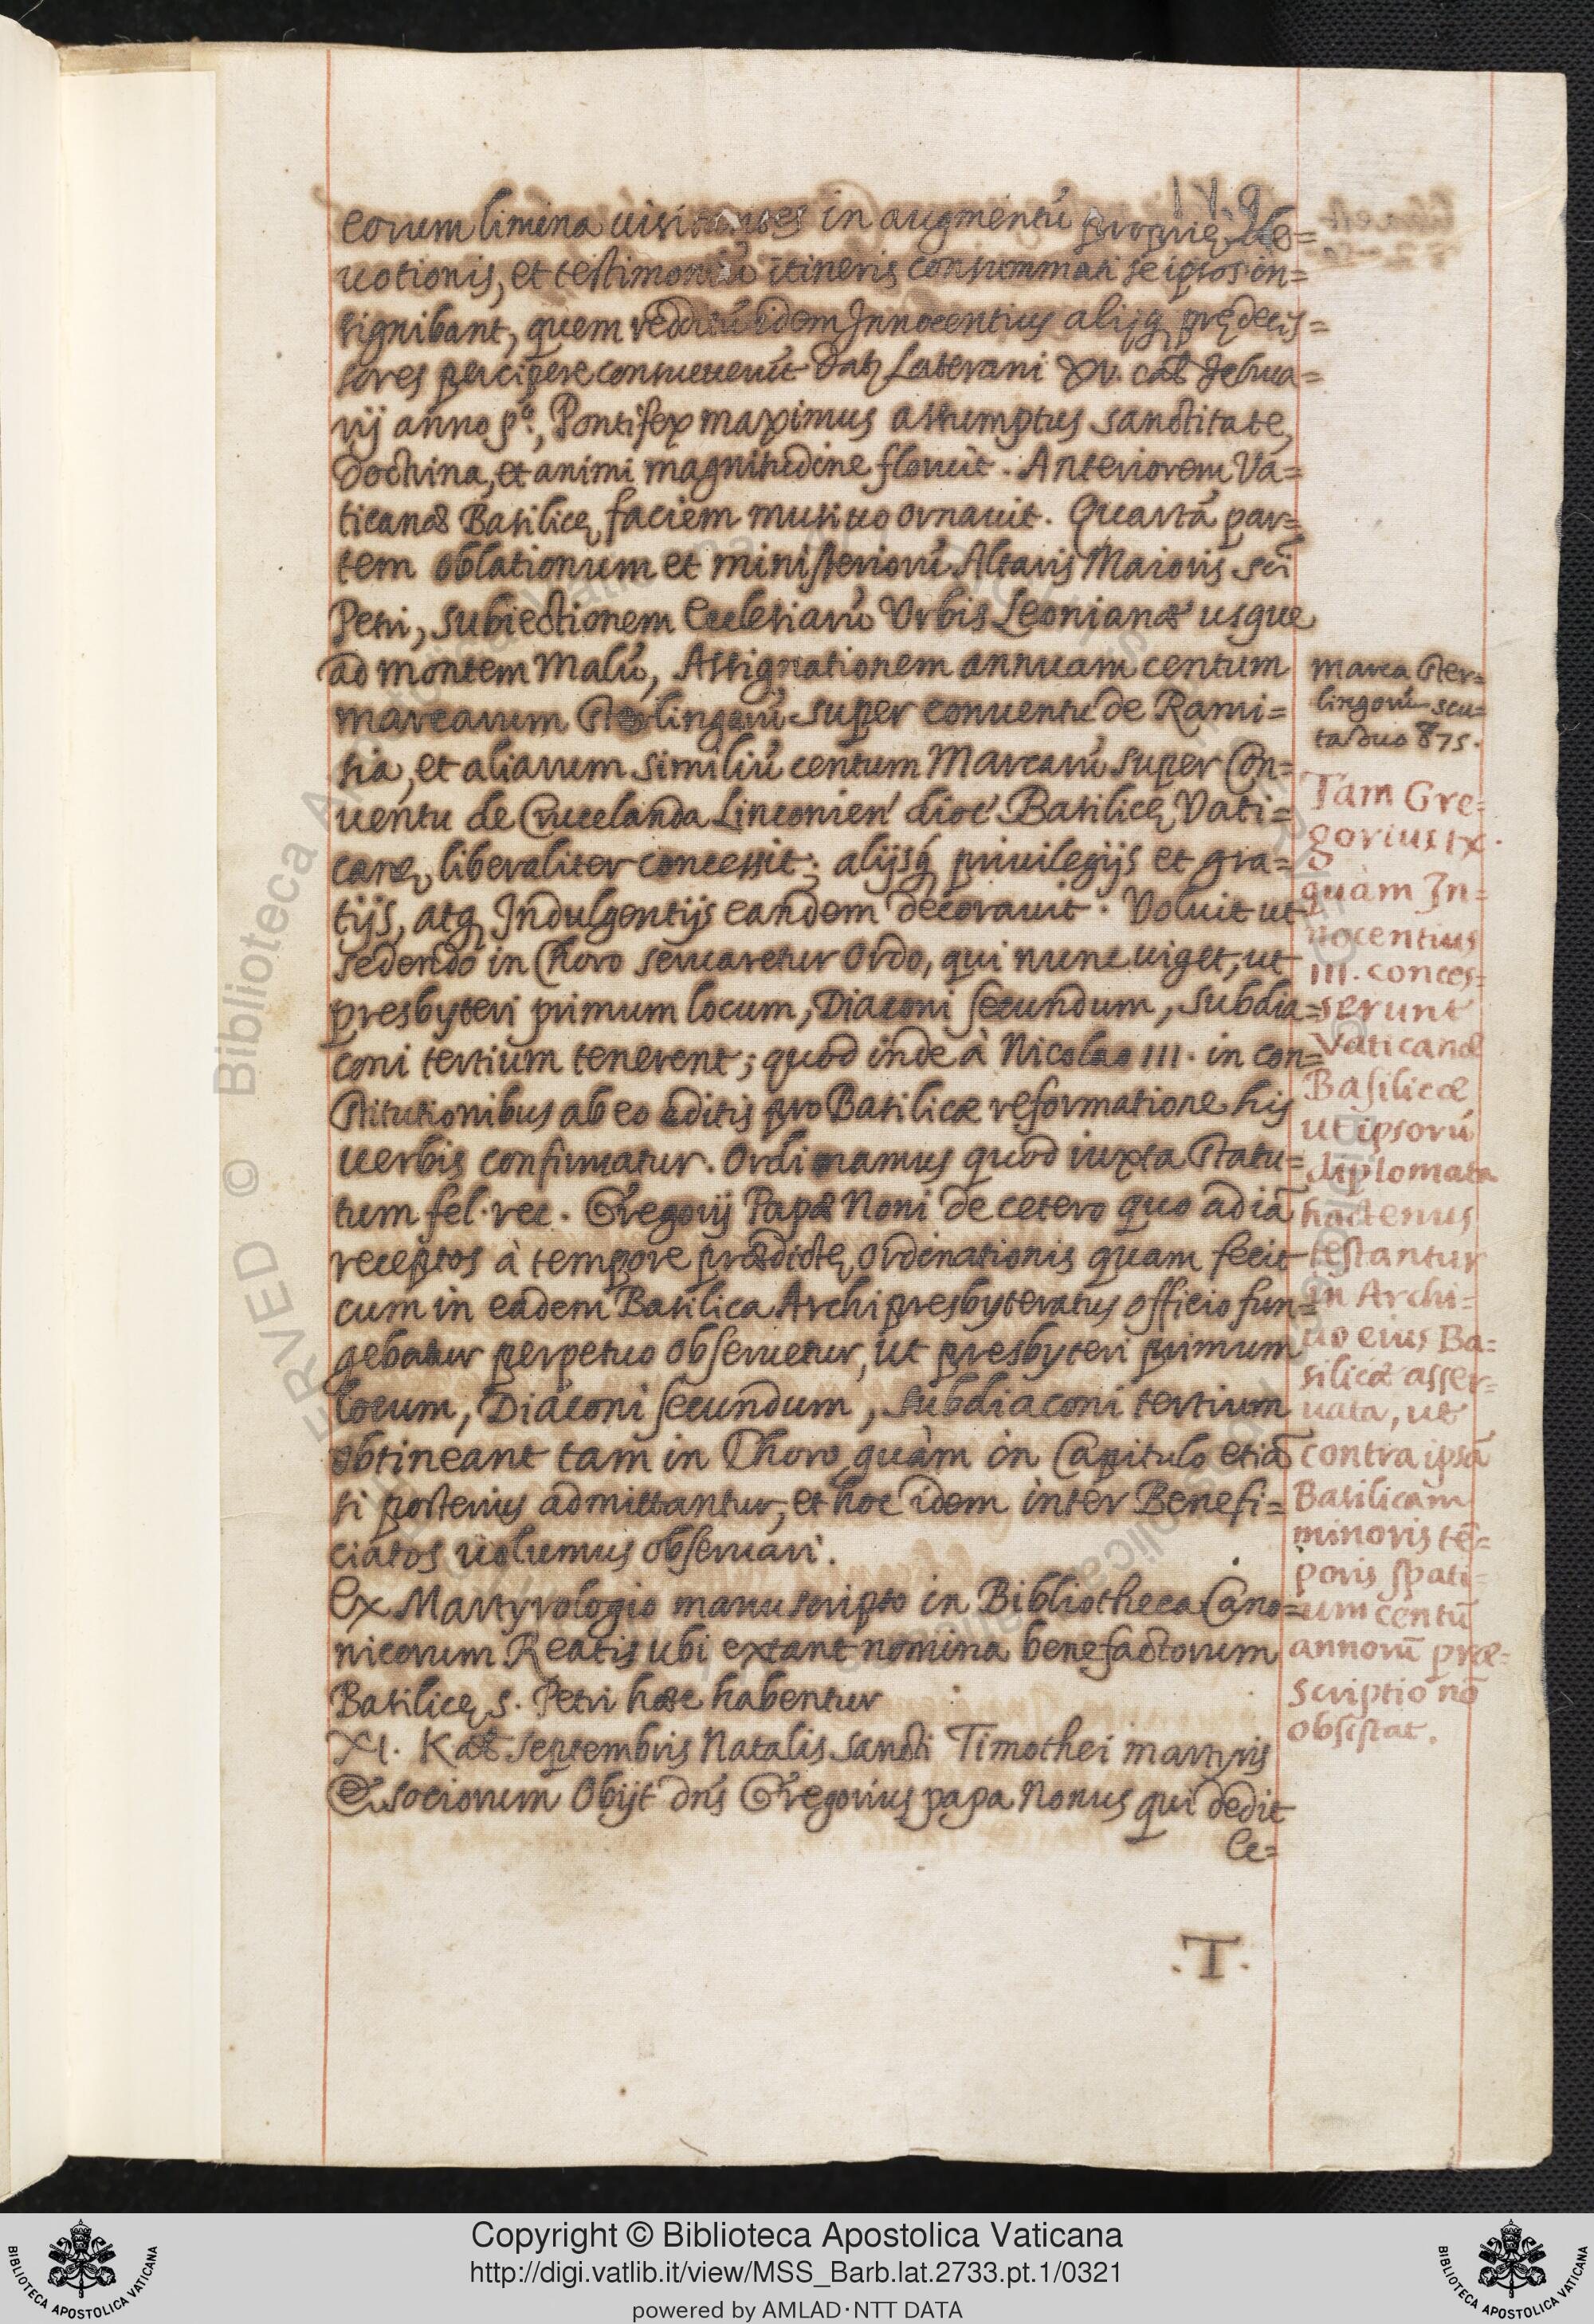 149
eorum limina uisitantes in augmentũ proprię de=
uotionis, et testimoniũ itineris consummati se ipsos in=
signibant, quem redditũ idem Innocentius alijq; prędeces=
sores percipere consueuerũt Dat. Laterani XV. cal februa=
rij anno p.º, Pontifex maximus assumptus sanctitate,
doctrina, et animi magnitudine floruit. Anteriorem Va=
ticanæ Basilicę faciem musiuo ornauit. Quartã par=
tem oblationum et ministeriorũ Altaris Maioris sci
Petri, subiectionem Ecclesiarũ Vrbis Leonianæ usque
ad montem Malũ, Assignationem annuam centum
marcarum sterlingorũ super conuentu de Rami=
sia, et aliarum similiũ centum Marcarũ super Con=
uentu de Crucelanda Linconien' dioc' Basilicę Vati=
canę liberaliter concessit; alijsq; priuilegijs et gra=
tijs, atq; Indulgentijs eandem decorauit. Voluit ut
sedendo in Choro seruaretur Ordo, qui nunc uiget, ut
presbyteri primum locum, Diaconi secundum, subdia=
coni tertium tenerent; quod inde à Nicolao III. in con=
stitutionibus ab eo editis pro Basilicæ reformatione his
uerbis confirmatur. Ordinamus quòd iuxta statu=
tum fel. rec. Gregorij Papæ Noni de cetero quo ad iã
receptos à tempore prædictę ordinationis quam fecit
cum in eadem Basilica Archipresbyteratus officio fun=
gebatur perpetuo obseruetur, ut presbyteri primum
locum, Diaconi secundum, subdiaconi tertium
obtineant tam in Choro quàm in Capitulo etiã
si posterius admittantur, et hoc idem inter Benefi=
ciatos uolumus obseruari.
Ex Martyrologio manuscripto in Bibliotheca Cano=
nicorum Reatis ubi extant nomina benefactorum
Basilicę S. Petri hæc habentur
XI. Kal septembris Natalis sancti Timothei martyris
& sociorum Obijt dñs Gregorius papa Nonus qui dedit
Ce=
.T.
marca ster=
lingorũ scu=
ta duo 875.
Tam Gre=
gorius IX.
quàm In=
nocentius
III. conces=
serunt
Vaticanæ
Basilicæ
ut ipsorũ
diplomata
hactenus
testantur
in Archi=
uo eius Ba=
silicæ asser=
uata, ut
contra ipsã
Basilicam
minoris tẽ=
poris spati=
um centũ
annorũ præ=
scriptio nõ
obsistat.
Copyright © Biblioteca Apostolica Vaticana
http://digi.vatlib.it/view/MSS_Barb.lat.2733.pt.1/0321
powered by AMLAD·NTT DATA
BIBLIOTECA APOSTOLICA VATICANA
BIBLIOTECA APOSTOLICA VATICANA